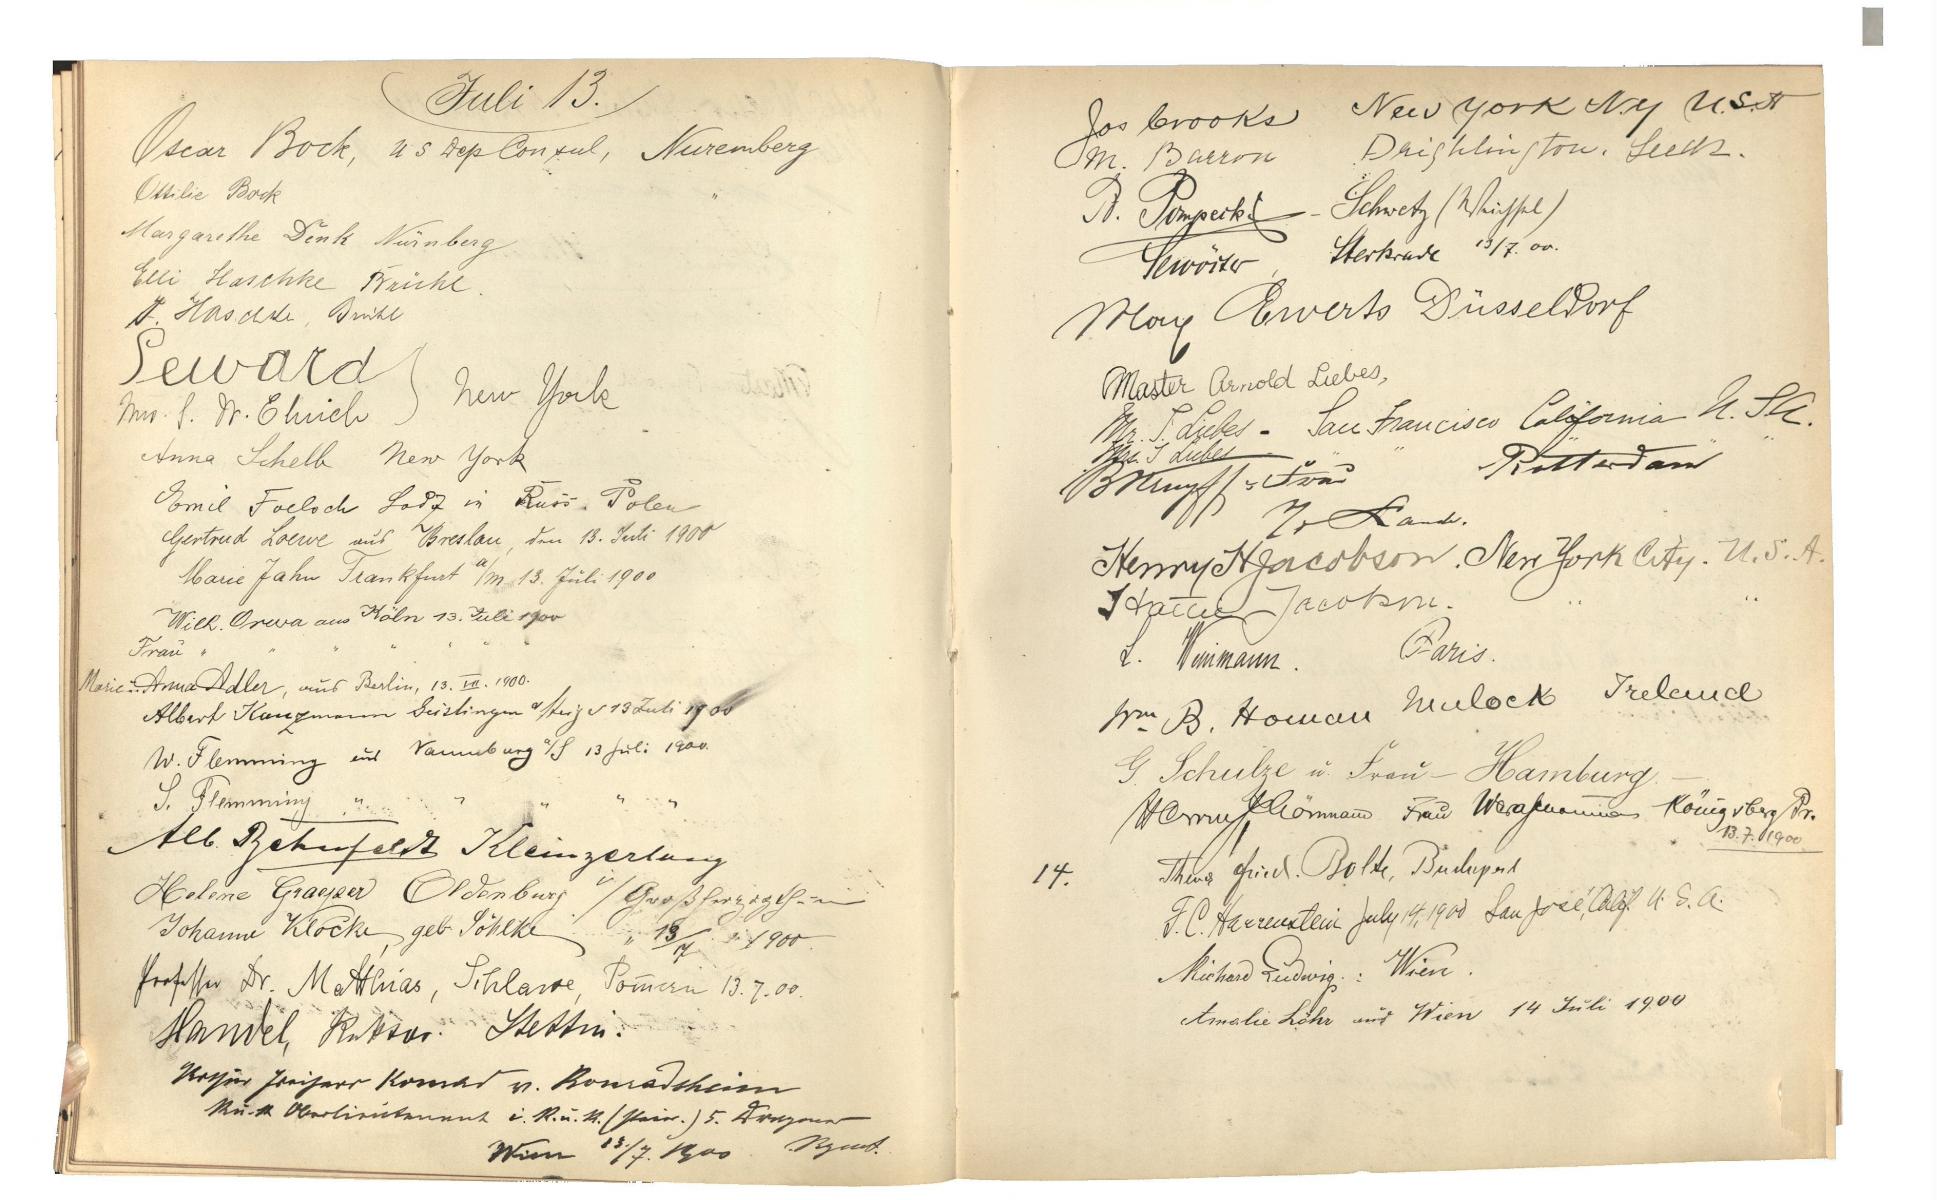 Juli 13.
Oscar Bock, U S Dep Consul, Nuremberg
Ottilie Bock "
Margarethe Denk Nürnberg
Elli Haschke Brühl.
A. Haschke, Brühl
Seward
Mrs. S. W. Ehrich } New York
Anna Schelb New York
Emil Lodz in Russ. Polen
Gertrud Loewe aus Breslau, den 13. Juli 1900
Marie Jahn Frankfurt a/m 13. Juli 1900
Wilh. Orwa aus Köln 13. Juli 1900
Frau " " " " " "
Marie u. Anna Adler, aus Berlin, 13. VII. 1900.
Albert Kunzmann Geislingen a/Steig 13 Juli 1900
W. Flemming aus Naumburg a/S 13 Juli 1900.
S. Flemming " " " " "
Alb. Rehnfeldt Kleinzerlang
Helene Graepser Oldenburg i/ Großherzogthum
Johanne Klocke, geb. Söhlke " 13/7 " 1900.
Professor Dr. Matthias, Schlawe, Pomern 13.7.00.
Handel, Rektor. Stettin.
Freiherr Konrad v. Konradsheim
K. u. K. Oberlieutenant i. K. u. K. 5. Dragoner
Wien 13./7. 1900 Rgmt.
Jos Crooks New York N.Y U.S.A
M. Barron Drighlington. Leeds.
P. Pompecki - Schwetz (Weichsel)
Sterkrade 13/7. 00.
Max Ewerts Düsseldorf
Master Arnold Liebes,
Mr. S. Liebes - San Francisco California U. S. A.
Mrs. S Liebes - " " " "
B Kruyff & Frau Rotterdam
Henry H Jacobson. New York City. U. S. A.
Hattie Jacobson. " "
L. Weinmann. Paris.
Wm B. Homan Mulock Ireland
G Schulze u. Frau - Hamburg -
Frau Königsberg Pr.
13.7.1900
14. Fried. Bolte, Budapest
F. C. Harrenstein July 14, 1900 San José, Calif. U. S. A.
Richard Ludwig: Wien.
Amalie Löhr aus Wien 14 Juli 1900